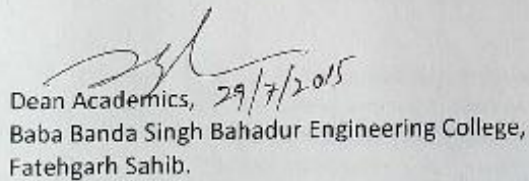 Dean Academics, 29/7/2015
Baba Banda Singh Bahadur Engineering College,
Fatehgarh Sahib.